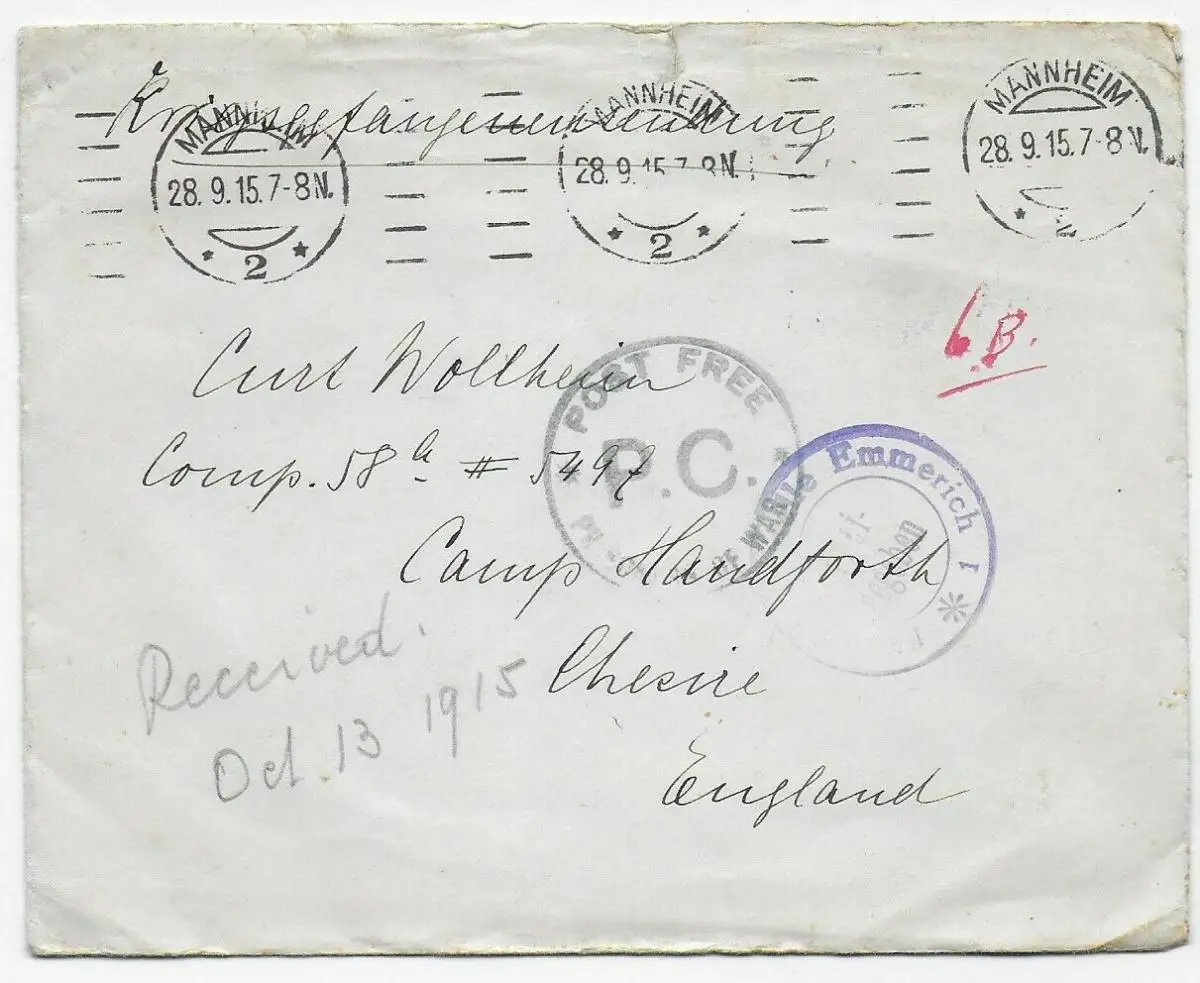 Kriegsgefangenensendung
MANNHEIM
28. 9. 15. 7-8 N.
* 2 *
MANNHEIM
28. 9. 15. 7-8 N.
* 2 *
MANNHEIM
28. 9. 15. 7-8 N.
* 2
6 B.
Curt Wollheim
POST FREE
P.C.
OF WAR
Comp. 58 a # 5497
Emmerich 1 *
Camp Handforth
Received.
Chesire
Oct. 13 1915
England